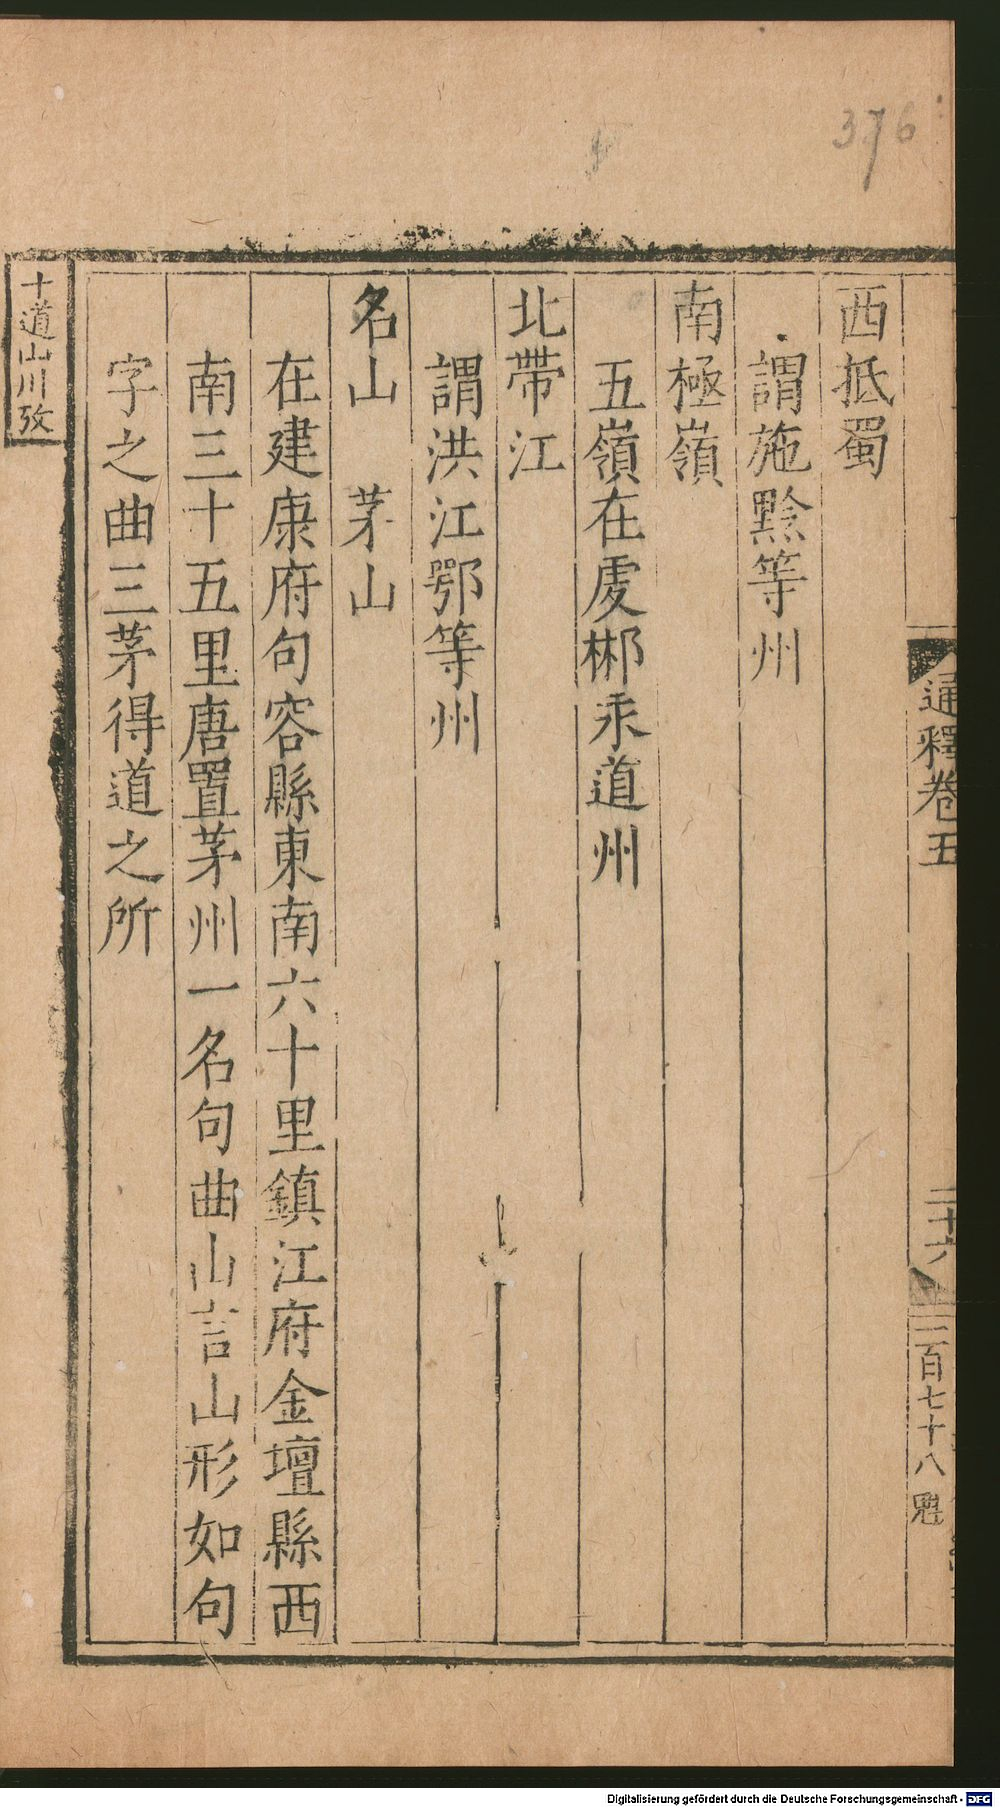 376
通釋卷五
二十六
二百七十八
西抵蜀
謂施黔等州
南極嶺
五嶺在虔郴永道州
北帶江
謂洪江鄂等州
名山 茅山
在建康府句容縣東南六十里鎮江府金壇縣西
南三十五里唐置茅州一名句曲山言山形如句
字之曲三茅得道之所
十道山川攷
Digitalisierung gefördert durch die Deutsche Forschungsgemeinschaft - DFG